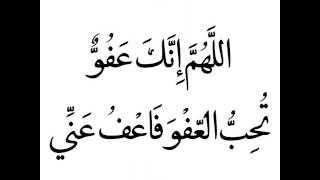 اللَّهُمَّ إِنَّكَ عَفُوٌّ
تُحِبُّ الْعَفْوَ فَاعْفُ عَنِّي